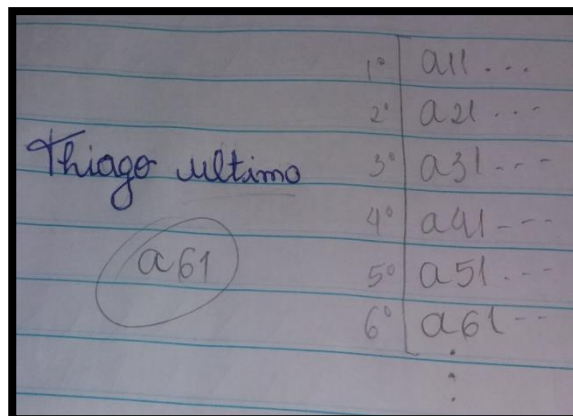 Thiago ultimo
a61
1º a11 ...
2º a21 ...
3º a31 ...
4º a41 ...
5º a51 ...
6º a61 ..